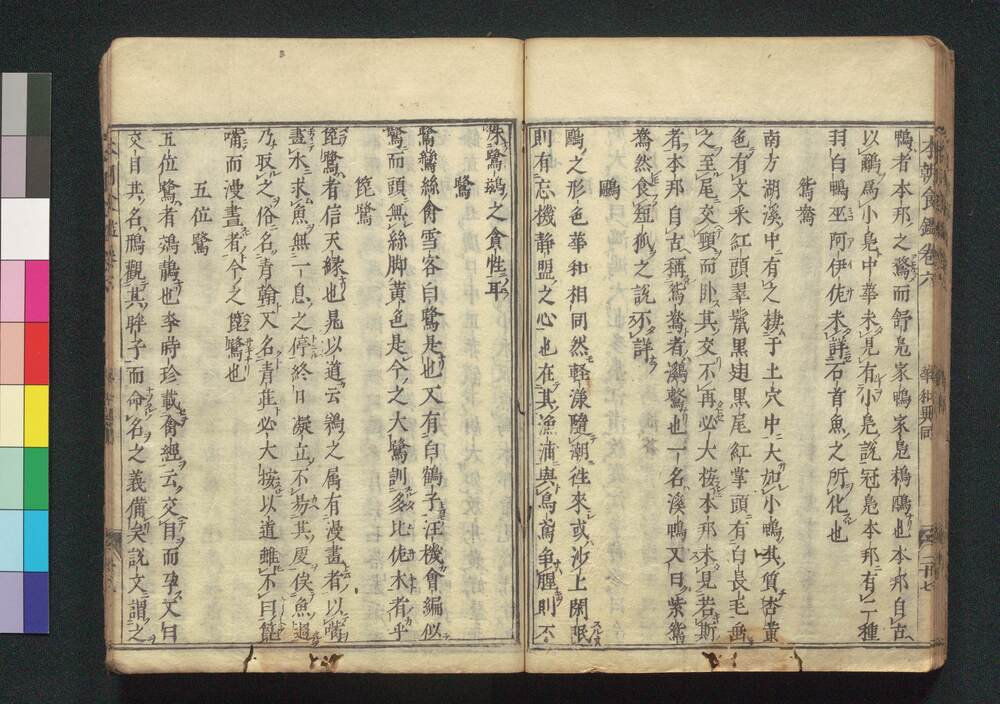 本朝食鑑卷六　華和異同　二十七
鴨者本邦之鶩而舒鳬家鴨家鳬鵎鴎也本邦自古
以鸍爲小鳬中華未見有小鳬說冠鳬本邦有一種
羽白鴨巫阿伊佐未詳石首魚之所化也
鴛鴦
南方湖溪中有之棲于土穴中大如小鴨其質杏黃
色有文采紅頭翠鬣黑翅黑尾紅掌頭有白長毛垂
之至尾交頸而卧其交不再必大按本邦未見若斯
者本邦自古稱鴛鴦者鸂鷘也一名溪鴨又曰紫鴛
鴦然食短狐之說不詳
鷗
鷗之形色華和相同然輕漾隨潮往來或沙上閑眠
則有忘機静盟之心也在其漁浦與烏鳶爭腥則不
殊鷺鷀之貪性耳
鷺
鷺鷥絲禽雪客白鷺是也又有白鶴子汪機會編似
鷺而頭無絲脚黃色是今之大鷺訓多比佐木者乎
箆鷺
箆鷺者信天緣也晁以道云鵜之屬有漫畫者以嘴
畫水求魚無一息之停終日凝立不易其處俟魚過
乃取之俗名青翰又名青莊必大按以道雖不曰箆
嘴而漫畫者今之箆鷺也
五位鷺
五位鷺者鵁鶄也李時珍載禽經云交目而孕又曰
交目其名鳽觀其眸子而命名之義備矣說文謂之